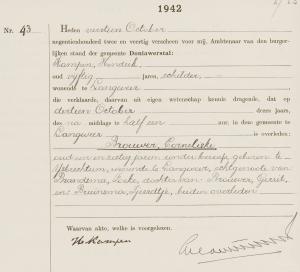 1942
Nr. 43 Heden veertien October
negentienhonderd twee en veertig verscheen voor mij, Ambtenaar van den burger-
lijken stand der gemeente Doniawerstal:
Kampen, Hendrik,
oud vijftig jaren, schilder,
wonende te Langweer
die verklaarde, daarvan uit eigen wetenschap kennis dragende, dat op
dertien October dezes jaars,
des na middags te half een uur, in deze gemeente te
Langweer is overleden:
Brouwer, Corneliske
oud een en zestig jaren, zonder beroep, geboren te
IJsbrechtum, wonende te Langweer, echtgenoote van
Brandsma, Sieke, dochter van Brouwer, Gerrit,
en Bruinsma, Tjeerdtje, beiden overleden
Waarvan akte, welke is voorgelezen.
H. Kampen